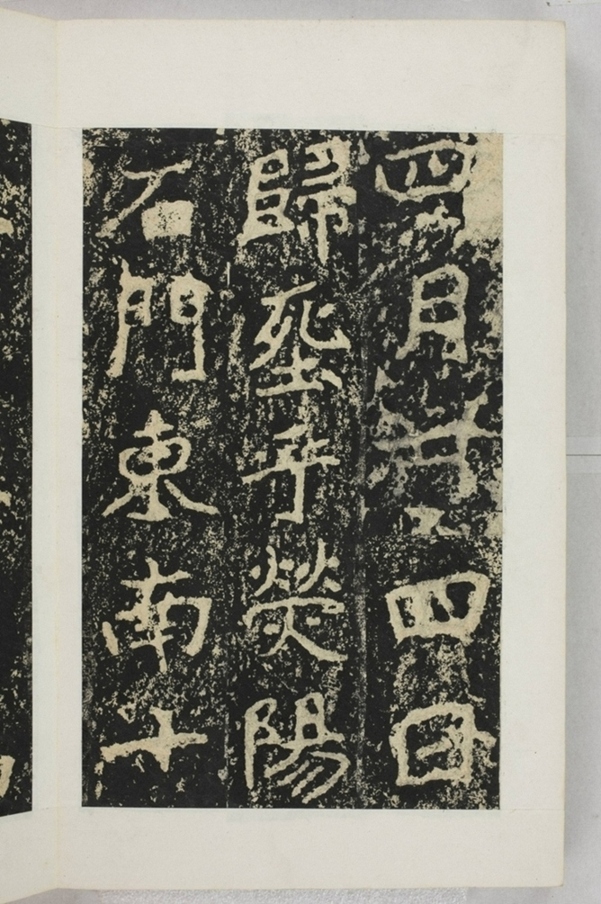 四月廿四日
歸葬乎熒陽
石門東南十